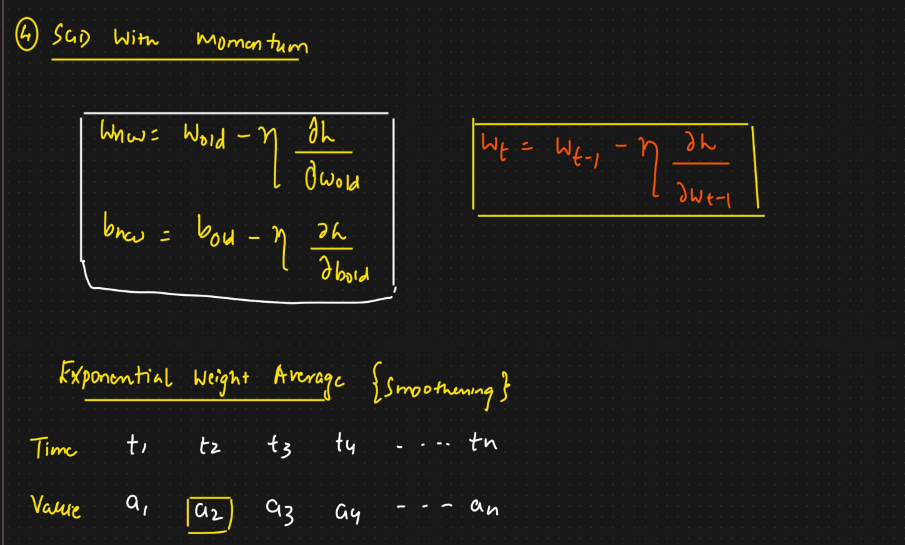 ④ SGD With Momentum
Wnew = Wold - η ∂L/∂Wold
bnew = bold - η ∂L/∂bold
Wt = Wt-1 - η ∂L/∂Wt-1
Exponential Weight Average {Smoothening}
Time t1 t2 t3 t4 - ... tn
Value a1 a2 a3 a4 - - - an